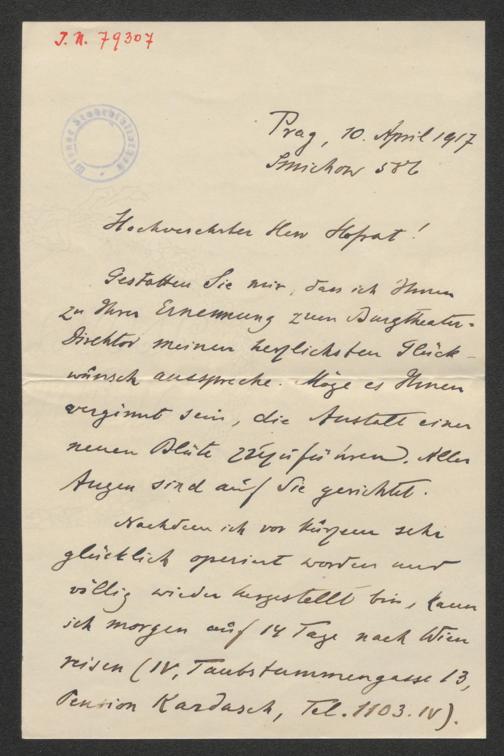 J. N. 79307
Wiener Stadtbibliothek
Prag, 10. April 1917
Smichow 586
Hochverehrter Herr Hofrat!
Gestatten Sie mir, dass ich Ihnen
zu Ihrer Ernennung zum Burgtheater-
Direktor meinen herzlichsten Glück-
wunsch ausspreche. Möge es Ihnen
vergönnt sein, die Anstalt einer
neuen Blüte zuzuführen. Aller
Augen sind auf Sie gerichtet.
Nachdem ich vor kurzem sehr
glücklich operiert worden und
völlig wieder hergestellt bin, kann
ich morgen auf 14 Tage nach Wien
reisen (IV, Taubstummengasse 13,
Pension Kardasch, Tel. 1103. IV).